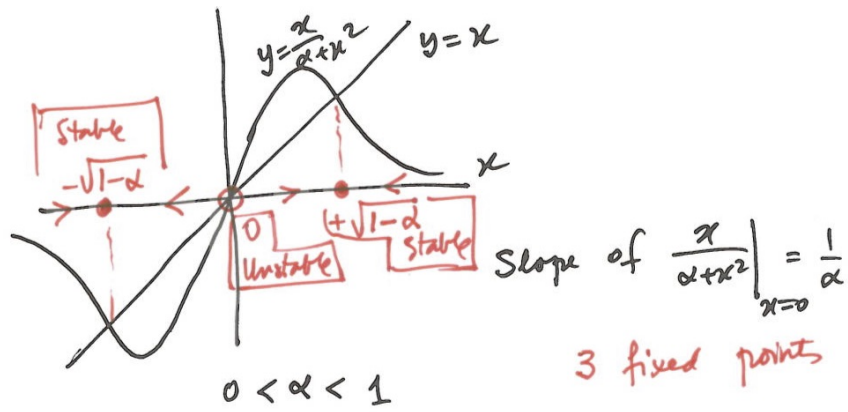 y = x/(α+x²)
y = x
Stable
-√(1-α)
x
0
Unstable
+√(1-α)
Stable
Slope of x/(α+x²)|ₓ₌₀ = 1/α
3 fixed points
0 < α < 1